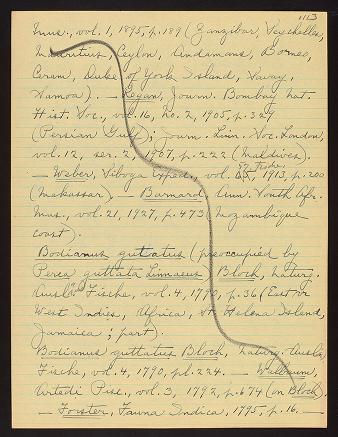 1113
Mus., vol. 1, 1895, p. 189 (Zanzibar, Seychelles,
Mauritius, Ceylon, Andamans, Borneo,
Ceram, Duke of York Island, Savay,
Samoa). — Regan, Journ. Bombay Nat.
Hist. Soc., vol. 16, no. 2, 1905, p. 327
(Persian Gulf); Journ. Linn. Soc. London,
vol. 12, ser. 2, 1907, p. 222 (Maldives).
— Weber, Siboga Exped., vol. 1913, p. 200
(Makassar). — Barnard, Ann. South Afr.
Mus., vol. 21, 1927, p. 473 (Mozambique
coast).
Bodianus guttatus (preoccupied by
Perca guttata Linnaeus) Bloch, Naturg.
Ausl. Fische, vol. 4, 1790, p. 36 (East or
West Indies, Africa, St. Helena Island,
Jamaica; part).
Bodianus guttatus Bloch, Naturg. Ausl.
Fische, vol. 4, 1790, pl. 224. — Walbaum,
Artedi Pisc., vol. 3, 1792, p. 674 (on Bloch).
— Forster, Fauna Indica, 1795, p. 16. —